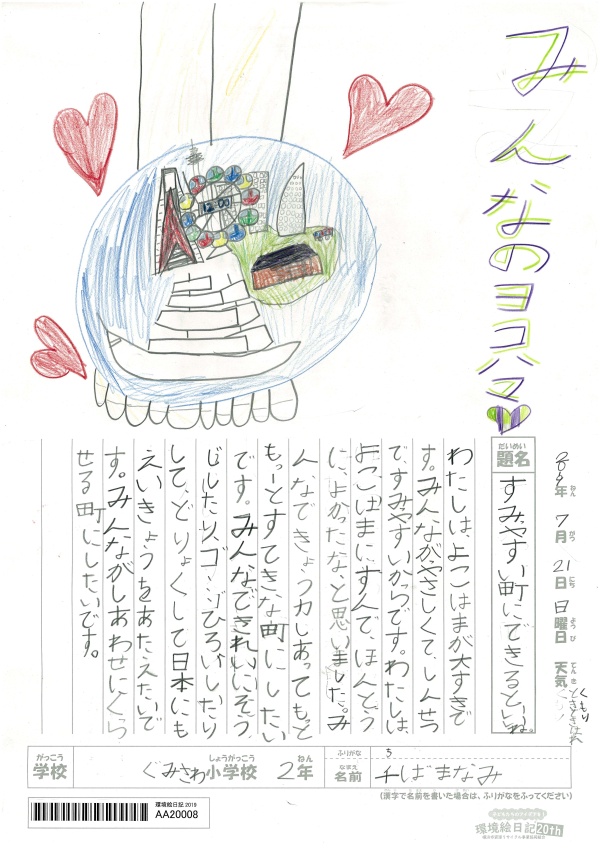 みんなのヨコハマ
年 7月 21日 日曜日 天気 くもり ときどきはれ
ねん がつ にち ようび てんき
だいめい
題名 すみやすい町にできるといいね。
わたしは、よこはまが大すきで
す。みんながやさしくてしんせつ
ですみやすいからです。わたしは、
よこはまに、すんで、ほんとう
に、よかったな、と思いました。み
んなできょう力しあってもっと
もっーとすてきな町にしたい
です。みんなできれいにそう
じしたり、ゴミひろいしたり
して、どりょくして日本にも
えいきょうをあたえたいで
す。みんながしあわせにくら
せる町にしたいです。
がっこう しょうがっこう ねん
学校 ぐみさわ小学校 2年
ふりがな ち
なまえ
名前 千ばまなみ
(漢字で名前を書いた場合は、ふりがなをふってください)
環境絵日記 2019
AA20008
環境絵日記20th
12:00